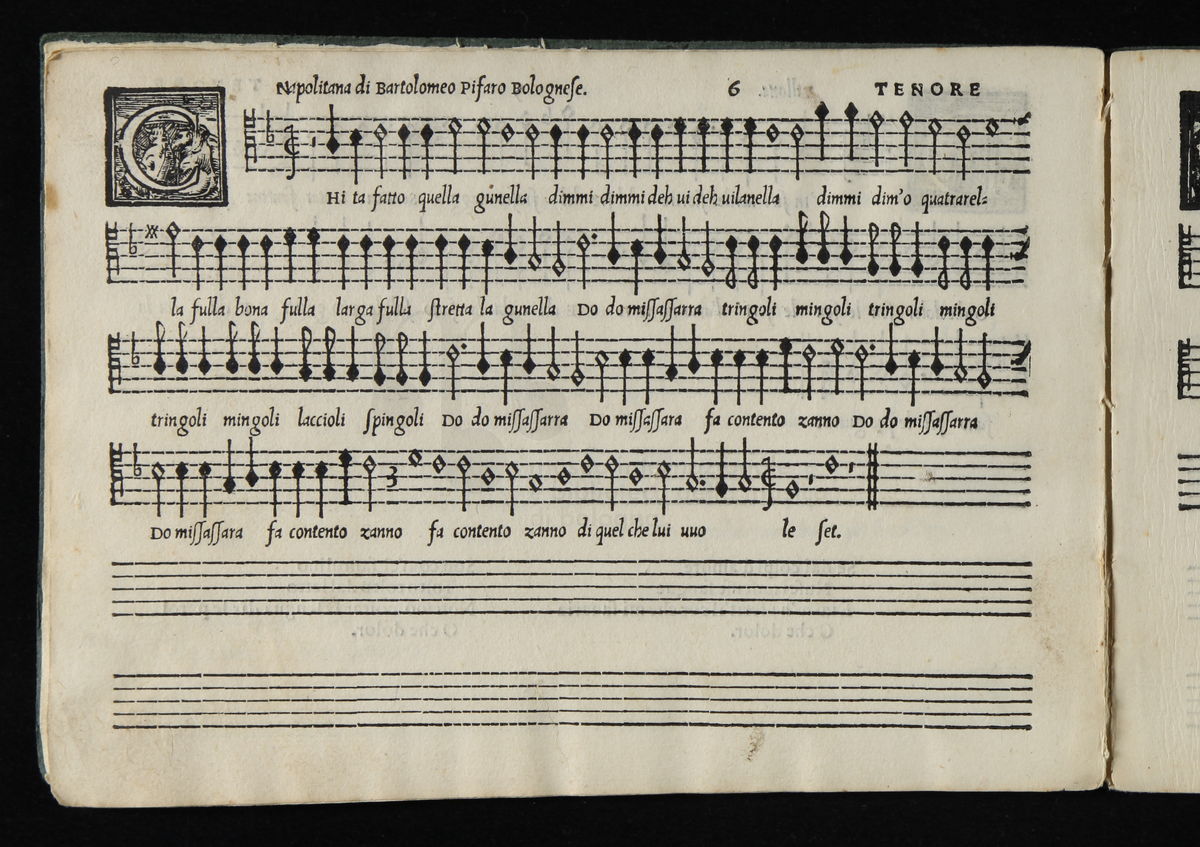 Napolitana di Bartolomeo Pifaro Bologneſe. 6 TENORE
C Hi ta fatto quella gunella dimmi dimmi deh ui deh uilanella dimmi dim'o quatrarel=
la fulla bona fulla larga fulla ſtretta la gunella Do do miſſaſſarra tringoli mingoli tringoli mingoli
tringoli mingoli laccioli ſpingoli Do do miſſaſſarra Do miſſaſſara fa contento zanno Do do miſſaſſarra
3
Do miſſaſſara fa contento zanno fa contento zanno di quel che lui uuo le ſet.
O che dolor. O che dolor.